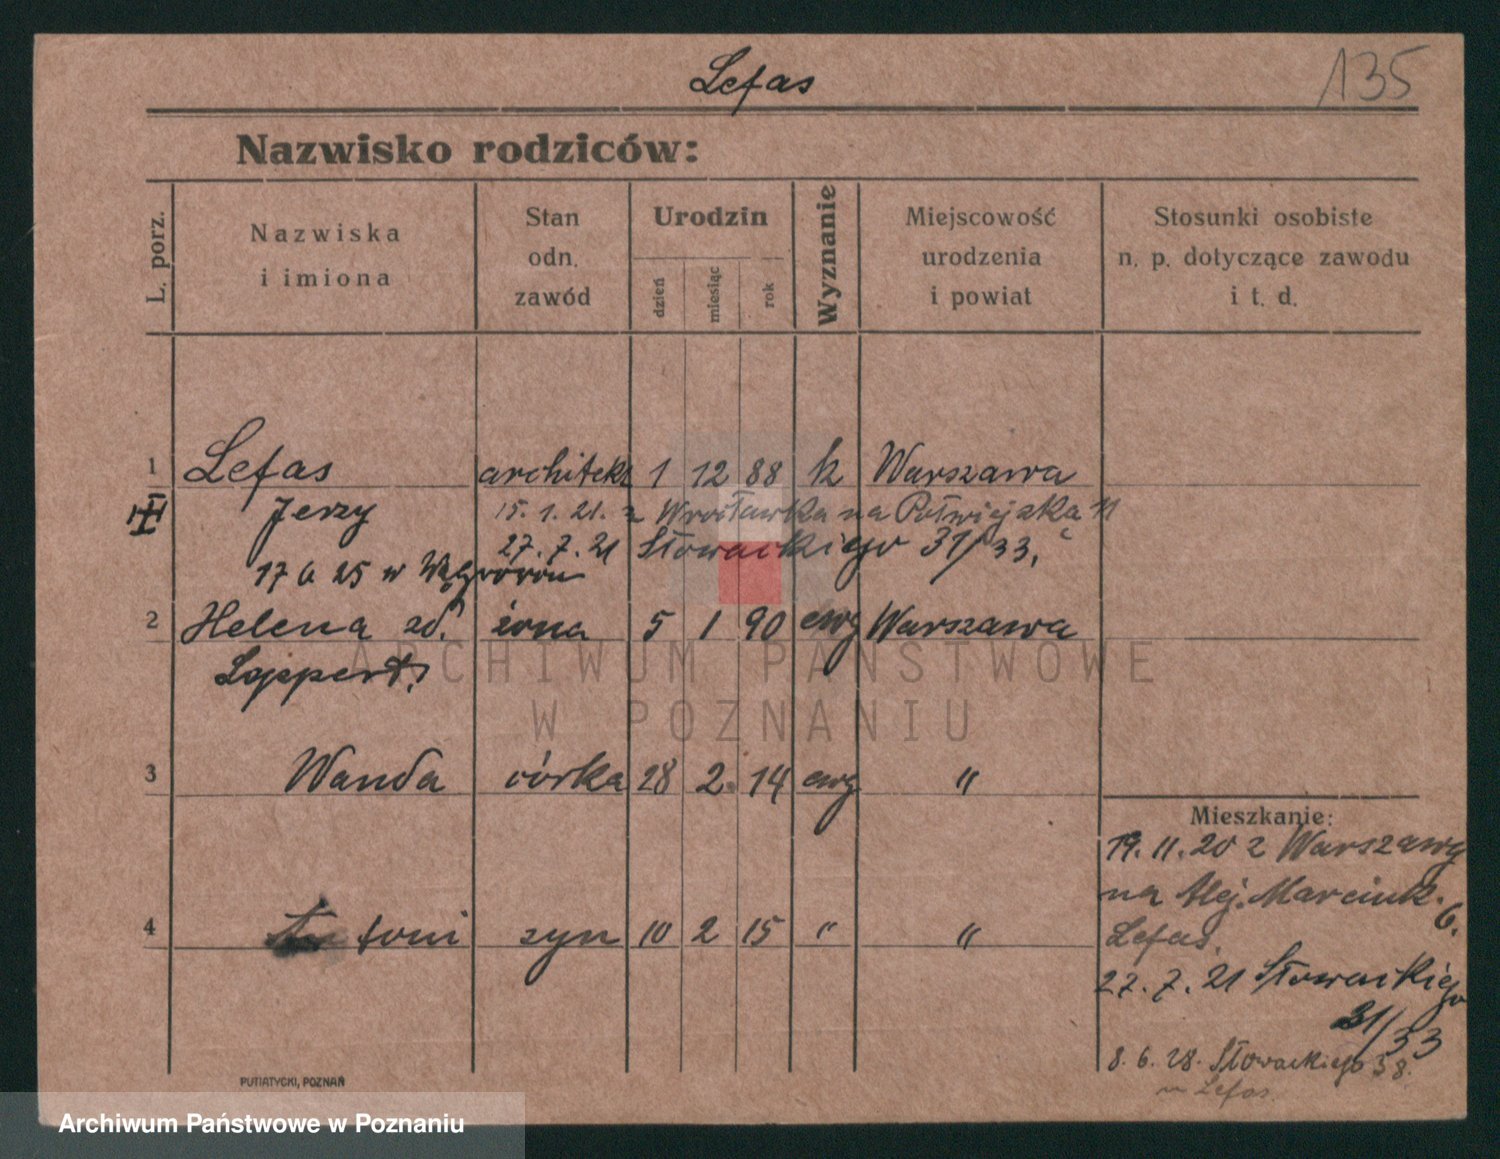 Lefas
135
Nazwisko rodziców:
L. porz.
Nazwiska
i imiona
Stan
odn.
zawód
Urodzin
dzień
miesiąc
rok
Wyznanie
Miejscowość
urodzenia
i powiat
Stosunki osobiste
n. p. dotyczące zawodu
i t. d.
1 Lefas architekt 1 12 88 k Warszawa
Jerzy 15. 1. 21. z Wrocławka na Półwiejska 11
27. 7. 21 Słowackiego 31/33.
17 6 25 w Wągrówcu
2 Helena zd. żona 5 1 90 ewg Warszawa
Lappert.
ARCHIWUM PAŃSTWOWE
W POZNANIU
3 Wanda córka 28 2. 14 ewg "
Mieszkanie:
19. 11. 20 z Warszawy
na Alej. Marcink.
6.
4 toni syn 10 2 15 " "
Lefas.
27. 7. 21 Słowackiego
31/33
8. 6. 28. Słowackiego 38.
u Lefas
PUTIATYCKI, POZNAŃ
Archiwum Państwowe w Poznaniu